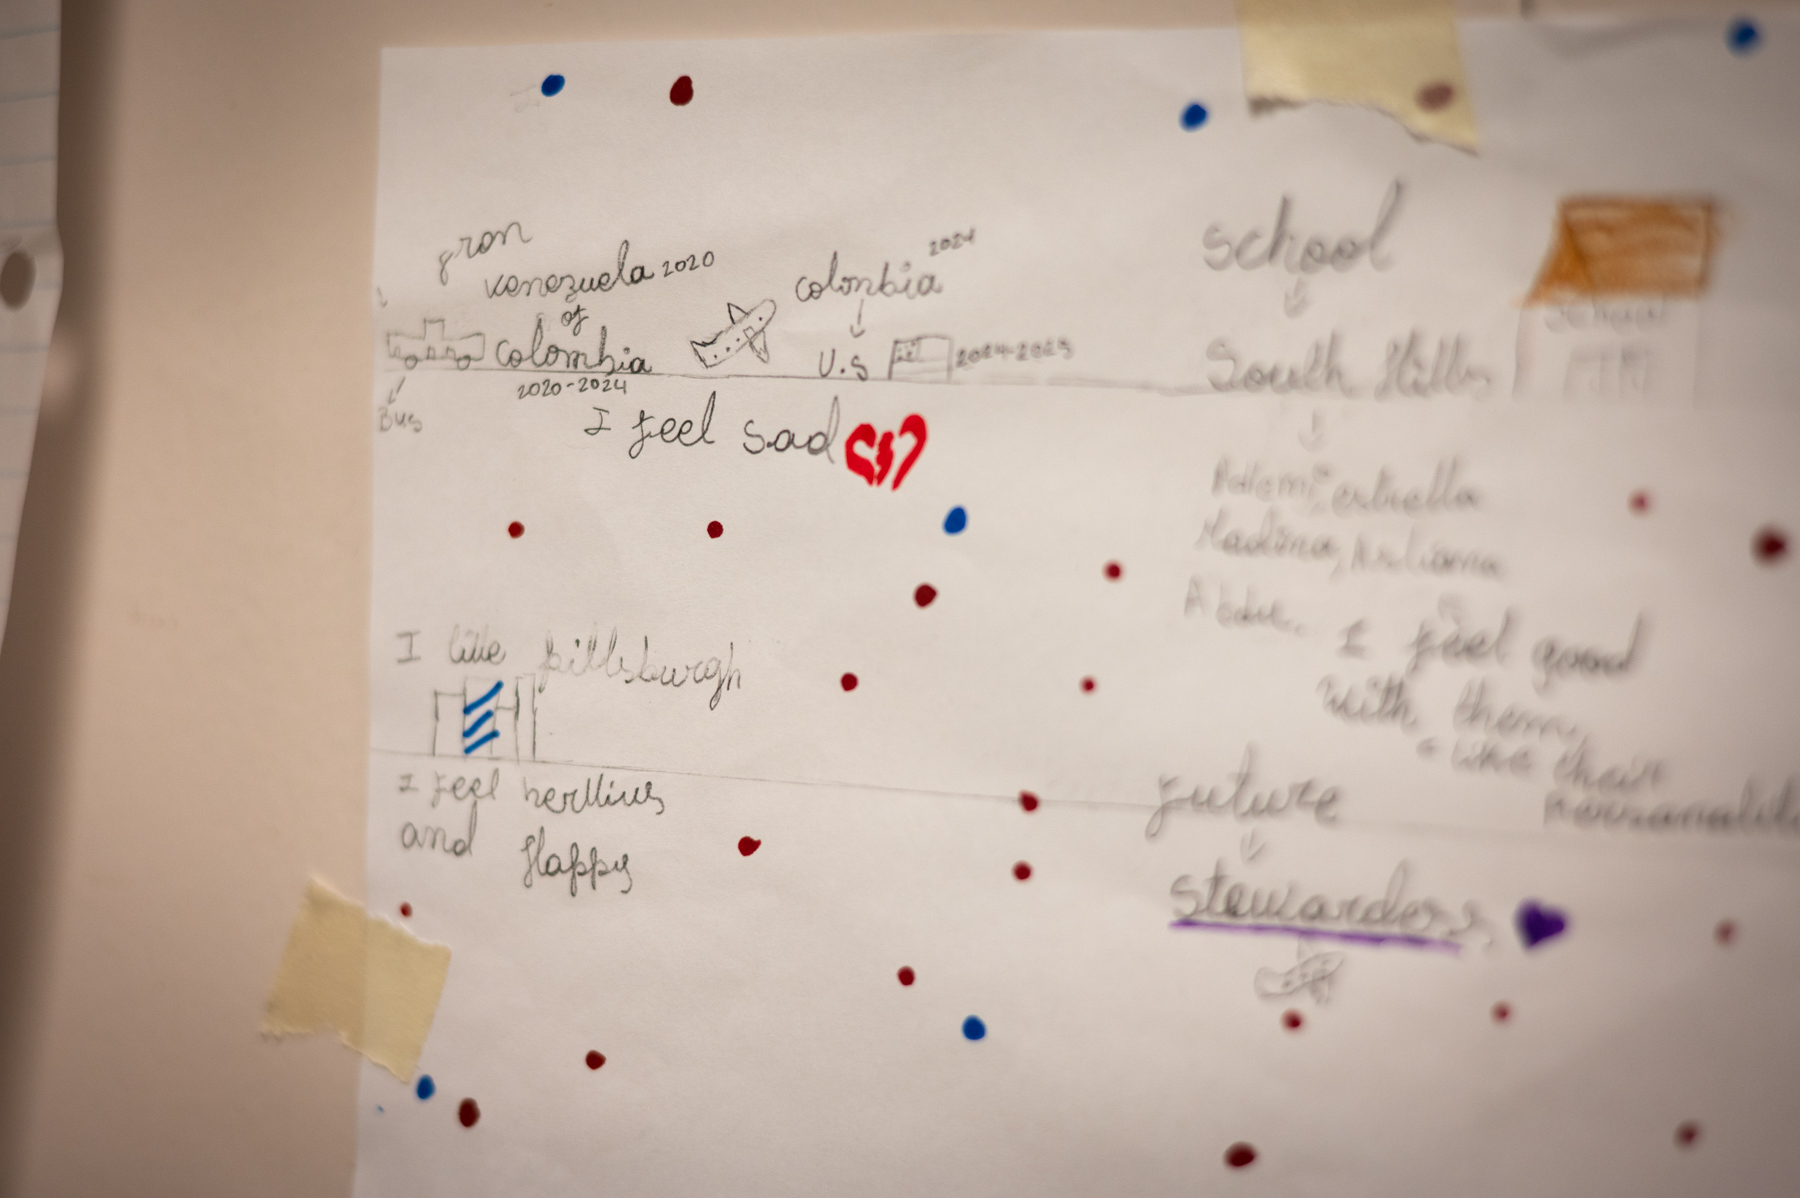 from
Venezuela 2020
of
Colombia
2020-2024
Bus
Colombia 2024
U.S 2024-2025
I feel sad
I like pittsburgh
I feel
and Happy
school
South Hills
estrella
I feel good
with them,
like their
future
stewardess